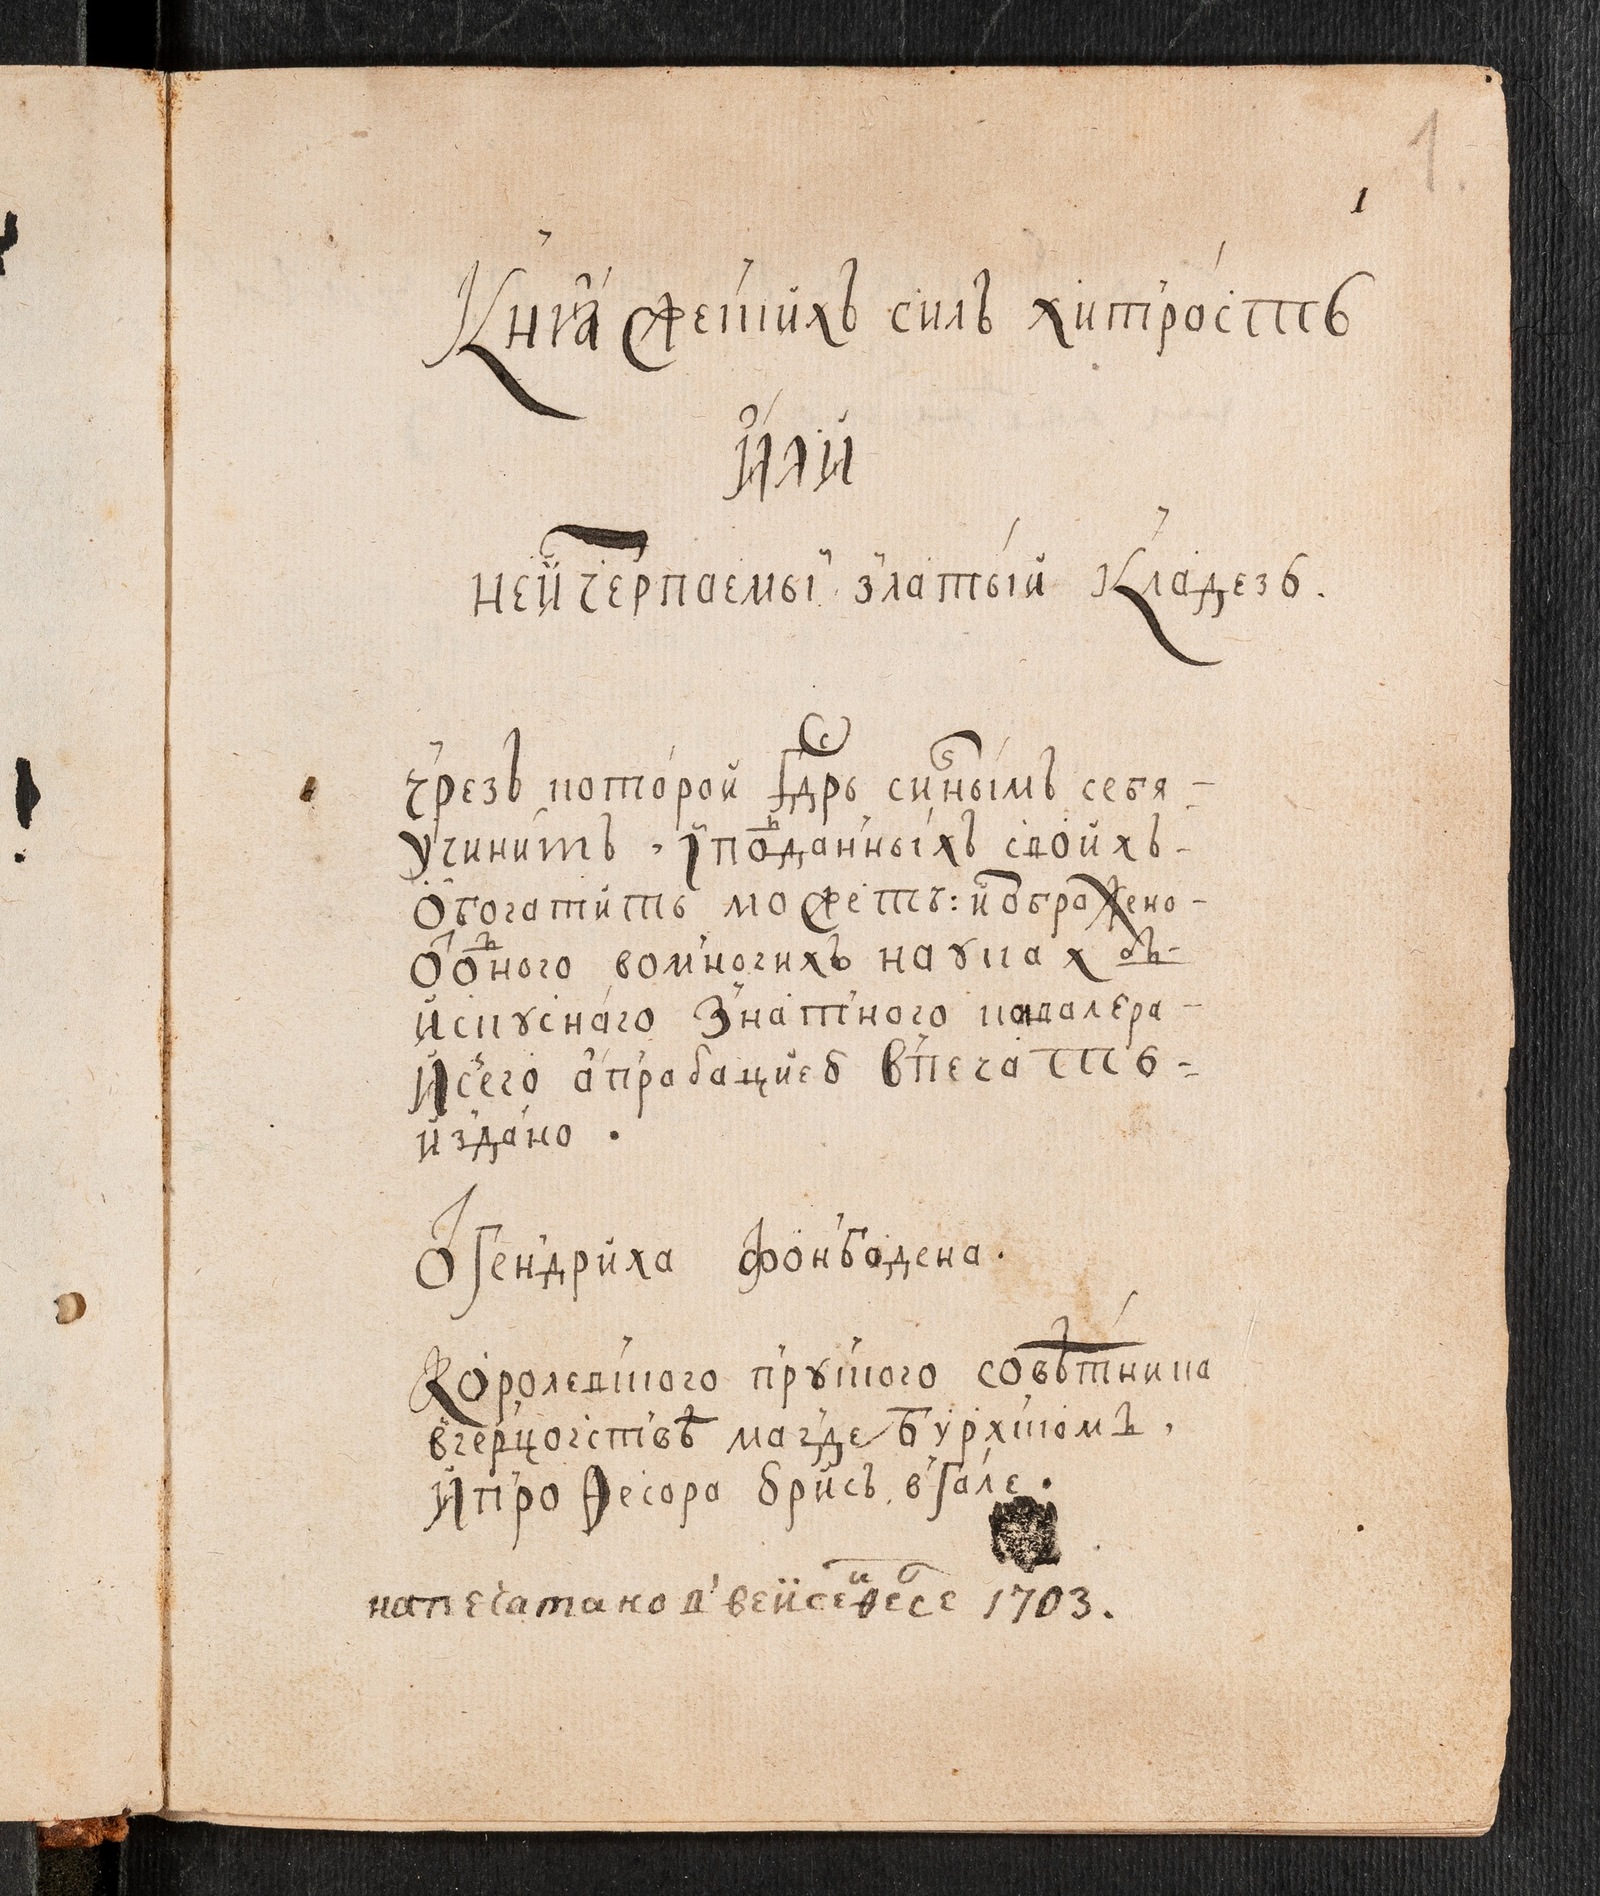 1.
1
Книга̀ жеских силъ хитрость
Или
неисчерпаемыи златыи Кладезь.
чрезъ которой Гдрь силнымъ себя
учинить, и подданныхъ своихъ
обогатить можетъ: изображено
от одного во многихъ наукахъ
искуснаго Знатного кавалера
И съ его апрабациею в печать
издано.
От Гендриха фонбодена.
Королевского пруского совѣтника
в герцогствѣ магдебурхскомъ,
И професора юрисъ, в Гале.
напечатано в вейсенфесе 1703.